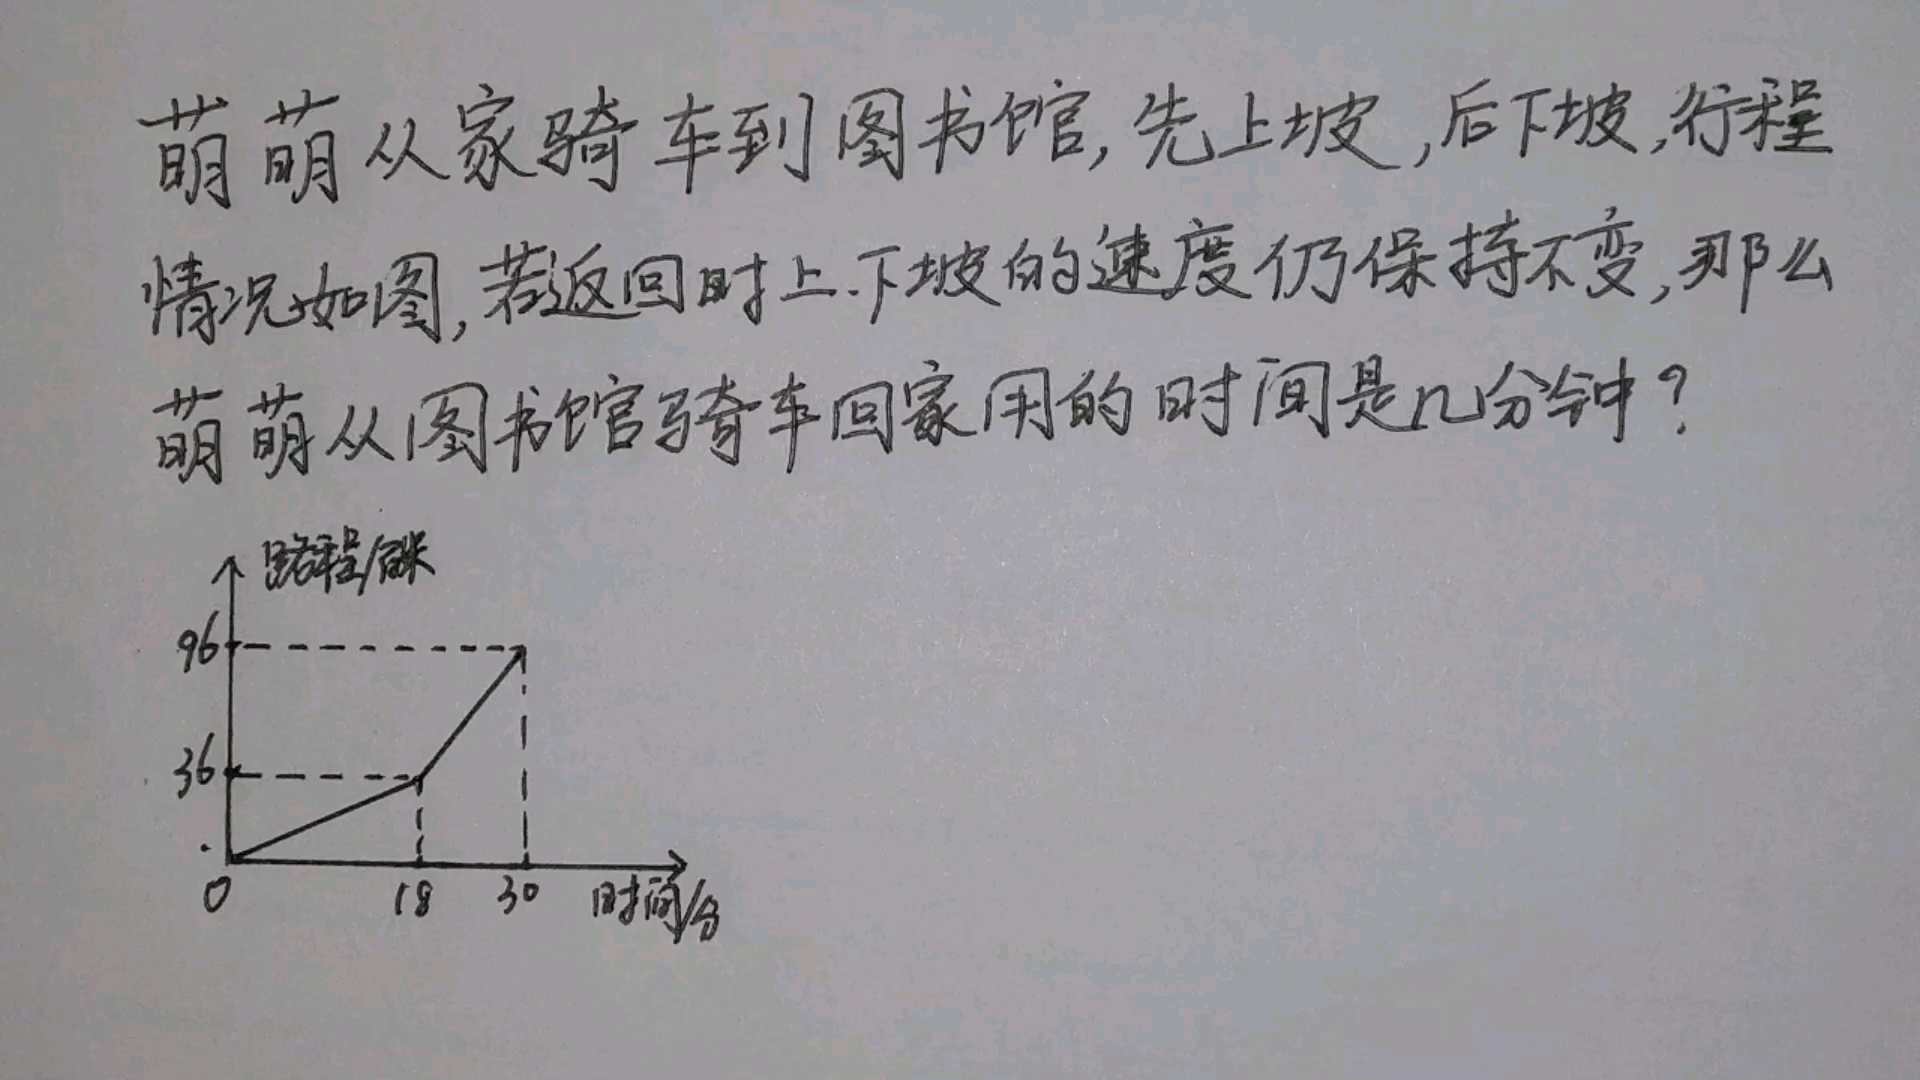 萌萌从家骑车到图书馆,先上坡,后下坡,行程
情况如图,若返回时上.下坡的速度仍保持不变,那么
萌萌从图书馆骑车回家用的时间是几分钟?
路程/百米
96
36
0 18 30 时间/分